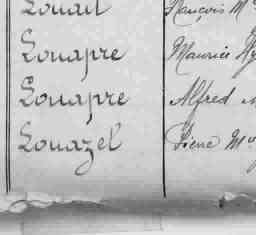 Louail François M
Louapre Maurice Hy
Louapre Alfred
Louazel Pierre M